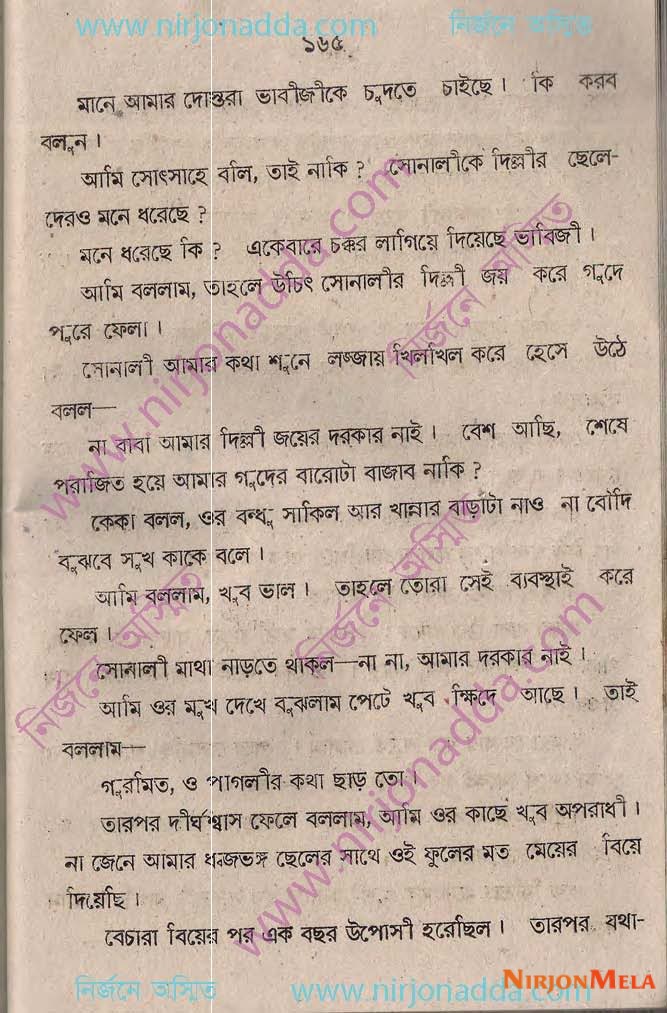 www.nirjonadda.com নির্জনে অস্মিত
১৬৫
মানে আমার দোস্তরা ভাবীজীকে চুদতে চাইছে। কি করব
বলুন।
আমি সোৎসাহে বলি, তাই নাকি? সোনালীকে দিল্লীর ছেলে-
দেরও মনে ধরেছে?
মনে ধরেছে কি? একেবারে চক্কর লাগিয়ে দিয়েছে ভাবিজী।
আমি বললাম, তাহলে উচিৎ সোনালীর দিল্লী জয় করে গুদে
পুরে ফেলা।
সোনালী আমার কথা শুনে লজ্জায় খিলখিল করে হেসে উঠে
বলল—
না বাবা আমার দিল্লী জয়ের দরকার নাই। বেশ আছি, শেষে
পরাজিত হয়ে আমার গুদের বারোটা বাজাব নাকি?
কেকা বলল, ওর বন্ধু সাকিল আর খান্নার বাড়াটা নাও না বৌদি
বুঝবে সুখ কাকে বলে।
আমি বললাম, খুব ভাল। তাহলে তোরা সেই ব্যবস্থাই করে
ফেল।
সোনালী মাথা নাড়তে থাকল—না না, আমার দরকার নাই।
আমি ওর মুখ দেখে বুঝলাম পেটে খুব ক্ষিদে আছে। তাই
বললাম—
গুরমিত, ও পাগলীর কথা ছাড় তো।
তারপর দীর্ঘশ্বাস ফেলে বললাম, আমি ওর কাছে খুব অপরাধী।
না জেনে আমার ধ্বজভঙ্গ ছেলের সাথে ওই ফুলের মত মেয়ের বিয়ে
দিয়েছি।
বেচারা বিয়ের পর এক বছর উপোসী হয়েছিল। তারপর যথা-
নির্জনে অস্মিত www.nirjonadda.com
NIRJONMELA
www.nirjonadda.com
নির্জনে অস্মিত
নির্জনে অস্মিত
নির্জনে অস্মিত
www.nirjonadda.com